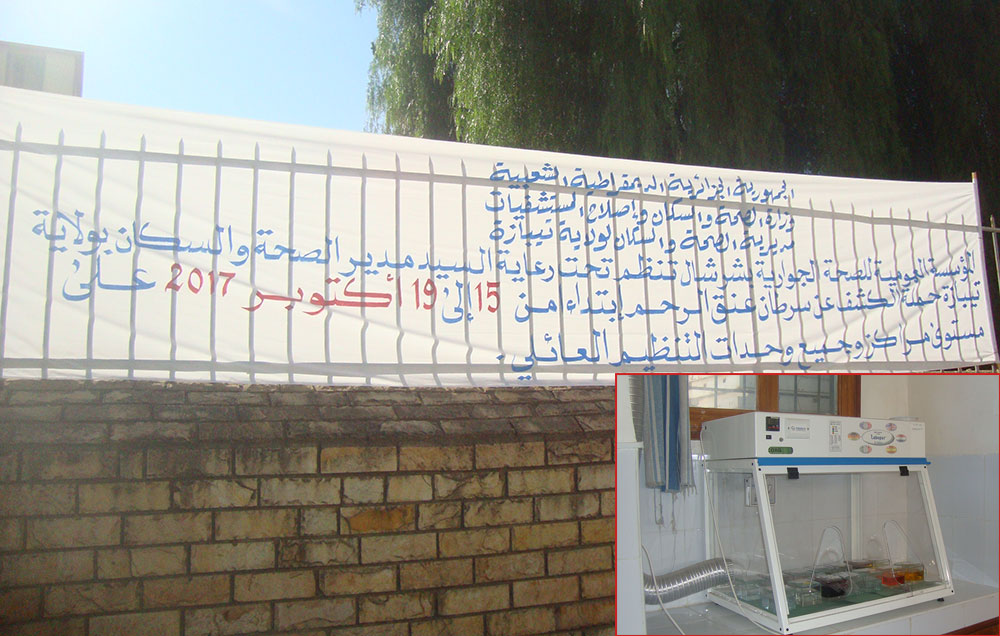 الجمهورية الجزائرية الديمقراطية الشعبية
وزارة الصحة والسكان وإصلاح المستشفيات
مديرية الصحة والسكان لولاية تيبازة
المؤسسة العمومية للصحة الجوارية بشرشال تنظم تحت رعاية السيد مدير الصحة والسكان بولاية
تيبازة حملة الكشف عن سرطان عنق الرحم إبتداء من 15 إلى 19 أكتوبر 2017 على
مستوى مراكز وجميع وحدات التنظيم العائلي.